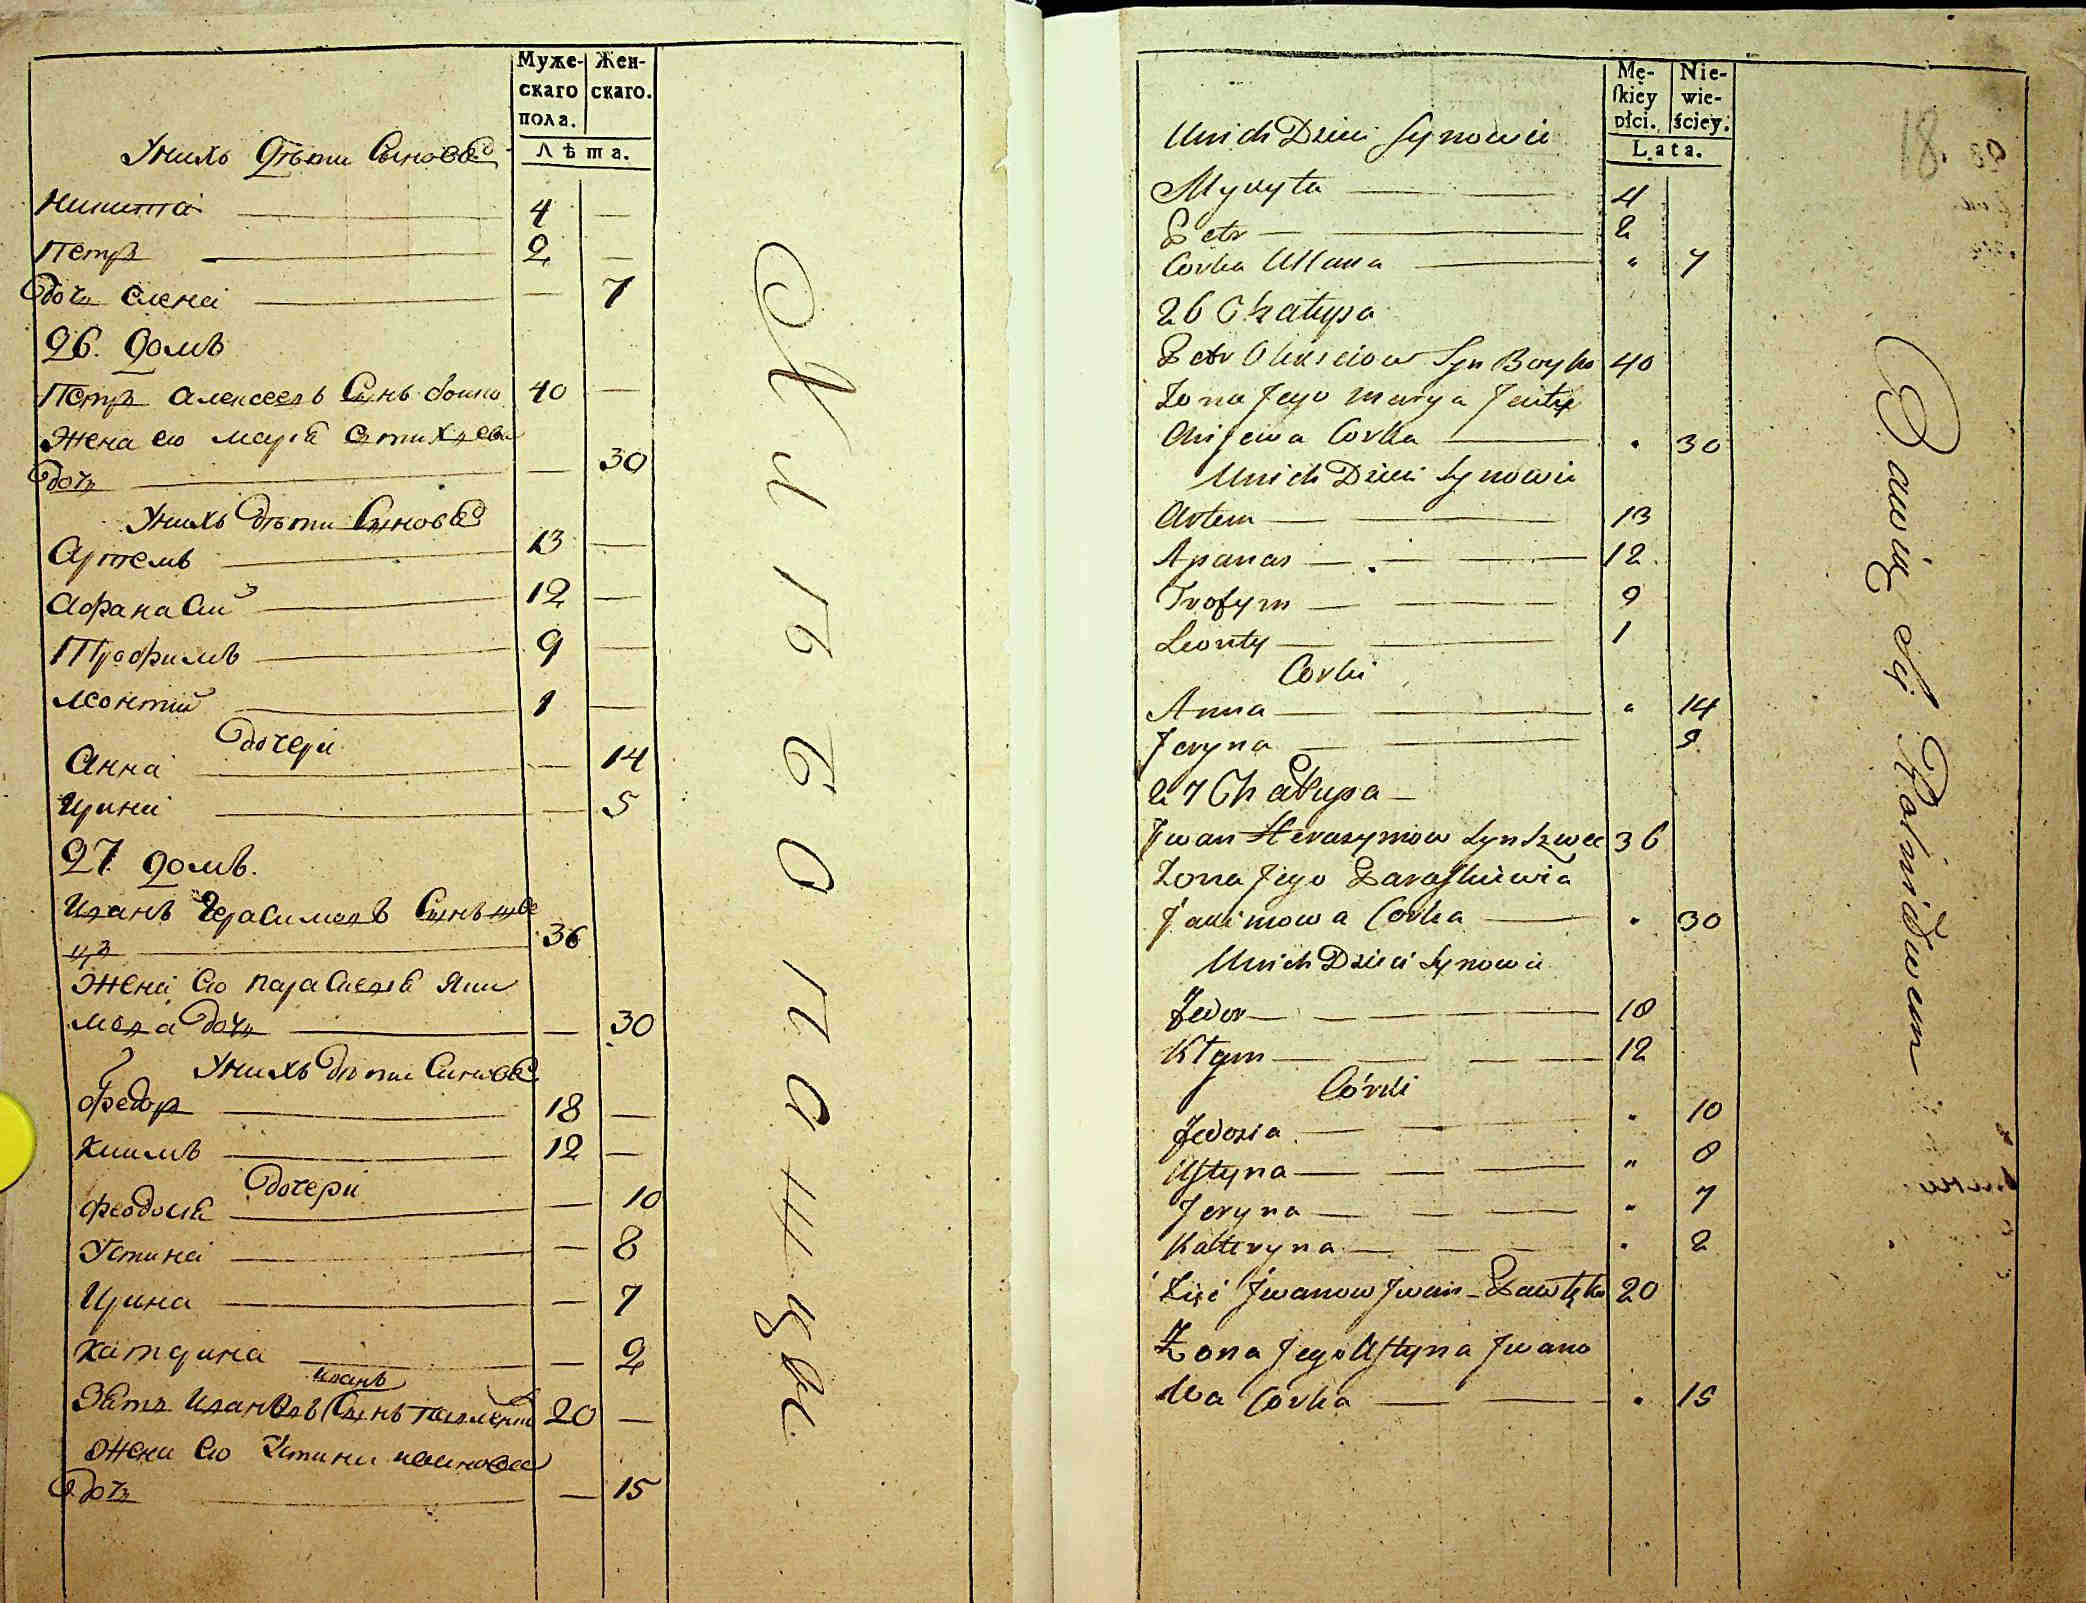 Муже-
скаго
пола.
Жен-
скаго.
Лѣта.
Унихъ Дѣти Сыновье
Никита 4 —
Петръ 2 —
Дочь елена — 7
26. домъ
Петръ Алексеевъ Сынъ бойко 40 —
Жена его марья
дочь — 30
Унихъ дѣти Сыновье
Артемъ 13 —
Афанасий 12 —
Трофимъ 9 —
Леонтий 1 —
дочери
Анна — 14
Ирина — 5
27. домъ.
Иванъ Герасимовъ Сынъ шве
цъ 36
Жена его парасковья Яки
мова дочь — 30
Унихъ дѣти Сыновье
Федоръ 18 —
Климъ 12 —
дочери
Феодосья — 10
Устина — 8
Ирина — 7
Катерина — 2
иванъ
Зять Ивановъ Сынъ 20 —
Жена его Устина
дочь — 15
Mę-
ſkiey
płci.
Nie-
wie-
ściey.
Lata.
18.
Unich Dzieci Synowie
Mykyta 4
Petr 2
Corka Ullana " 7
26 Chałupa
Petr Olexieiow Syn Boyko 40
Zona Jego Marya
Corka " 30
Unich Dzieci Synowie
Artem 13
Apanas 12
Trofym 9
Leonty 1
Corki
Anna " 14
Jeryna 5
27 Chałupa
Jwan Herasymow Syn Szwec 36
Zona Jego Paraſkiewia
Jakimowa Corka " 30
Unich Dzieci Synowie
Fedor 18
Kłym 12
Córki
Fedosia " 10
Uſtyna " 8
Jeryna " 7
Katteryna " 2
Zięć Jwanow Jwan 20
Zona Jego Uſtyna Jwano
wa Corka " 15